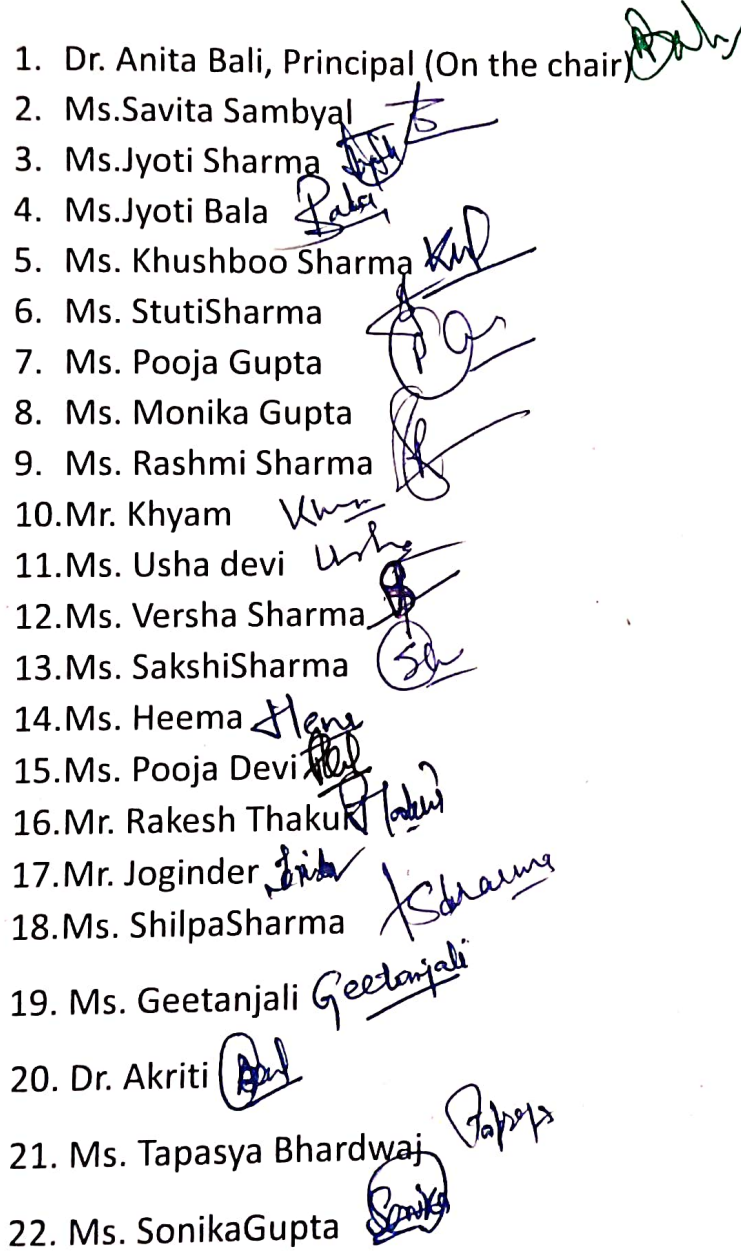 1. Dr. Anita Bali, Principal (On the chair) Bali
2. Ms.Savita Sambyal
3. Ms.Jyoti Sharma Jyoti
4. Ms.Jyoti Bala Bala
5. Ms. Khushboo Sharma
6. Ms. StutiSharma
7. Ms. Pooja Gupta
8. Ms. Monika Gupta
9. Ms. Rashmi Sharma
10.Mr. Khyam
11.Ms. Usha devi Usha
12.Ms. Versha Sharma
13.Ms. SakshiSharma
14.Ms. Heema
15.Ms. Pooja Devi
16.Mr. Rakesh Thakur
17.Mr. Joginder
18.Ms. ShilpaSharma SSharma
19. Ms. Geetanjali Geetanjali
20. Dr. Akriti
21. Ms. Tapasya Bhardwaj
22. Ms. SonikaGupta Sonika